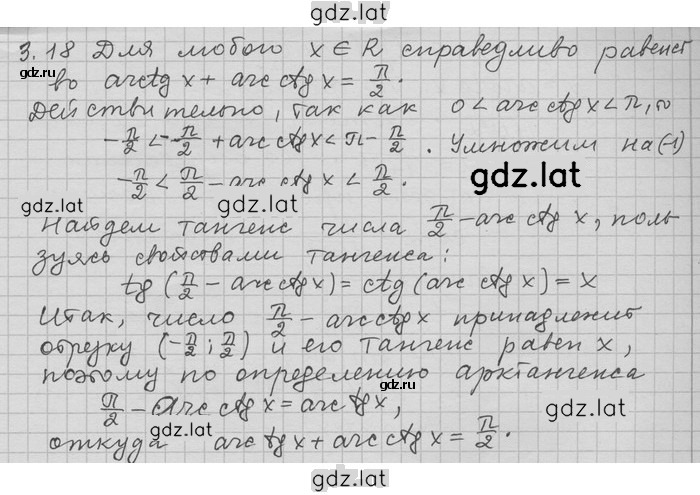 gdz.lat
3.18 Для любого x ∈ R справедливо равенст
gdz.lat
во arctg x + arc ctg x = π/2.
gdz.lat
Действительно, так как 0 < arc ctg x < π, то
-π/2 < -π/2 + arc ctg x < π - π/2. Умножим на (-1)
-π/2 < π/2 - arc ctg x < π/2.
gdz.lat
gdz.lat
Найдем тангенс числа π/2 - arc ctg x, поль
зуясь свойствами тангенса:
gdz.lat
tg (π/2 - arc ctg x) = ctg (arc ctg x) = x
Итак, число π/2 - arc ctg x принадлежит
отрезку (-π/2; π/2) и его тангенс равен x,
gdz.lat
поэтому по определению арктангенса
gdz.lat
π/2 - arc ctg x = arc tg x,
gdz.lat
gdz.lat
откуда arc tg x + arc ctg x = π/2.
gdz.lat